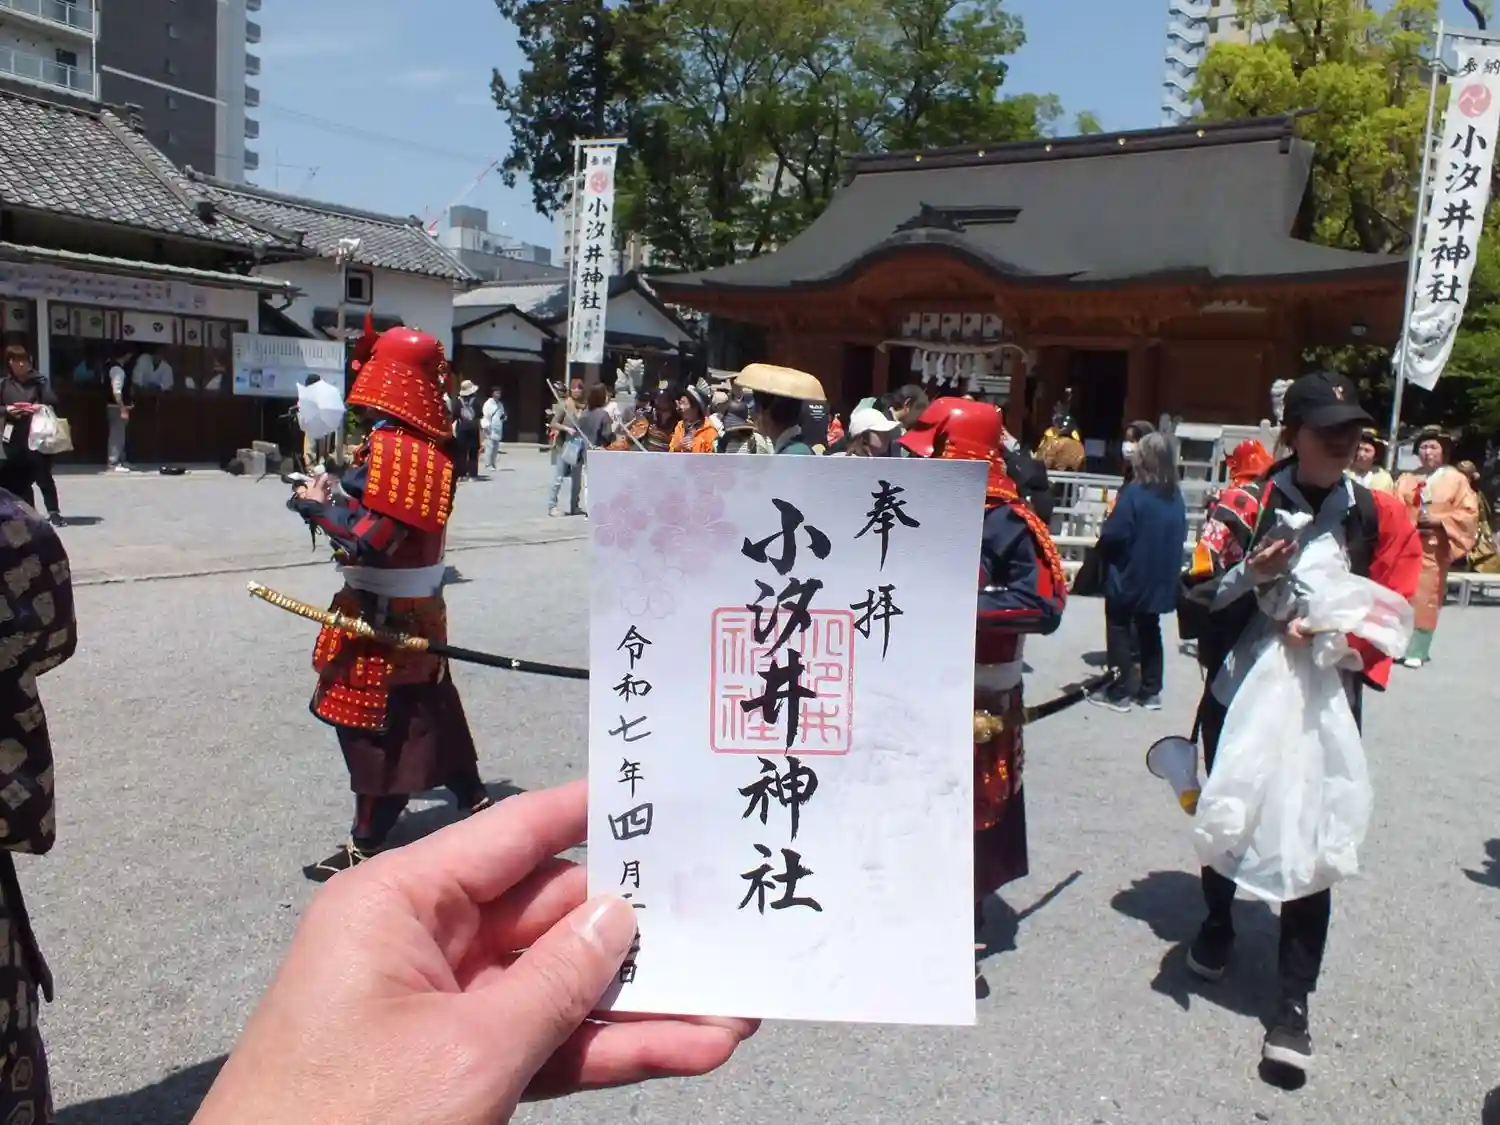 奉拝
小汐井神社
令和七年四月
日
小汐井神社
奉納
小汐井神社
奉納
小汐井神社